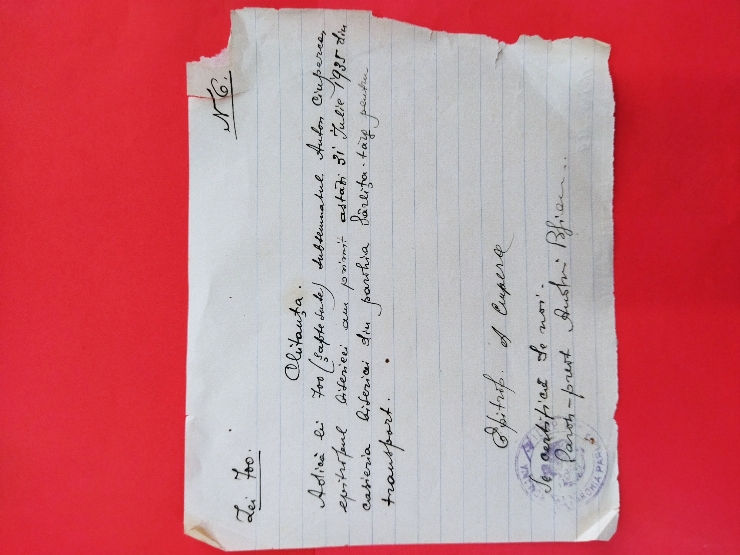 Lei 700.
N 6.
Chitanța.
Adică lei 700 (șaptesute) subsemnatul Anton Ciuperca,
epitropul bisericei am primit astăzi 31 Iulie 1935 din
casieria bisericei din parohia Sârlița-târg pentru
transport.
Epitrop. A Ciuperca
Se certifică de noi.
Paroh-preot
PAROHIA